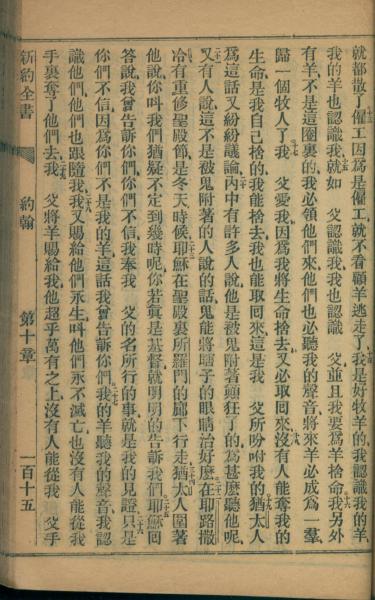 就都散了僱工因爲是僱工就不看顧羊逃走了我是好牧羊的我認識我的羊
我的羊也認識我就如 父認識我我也認識 父並且我要爲羊捨命我另外
有羊不是這圈裏的我必領他們來他們也必聽我的聲音將來羊必成爲一羣
歸一個牧人了我 父愛我因爲我將生命捨去又必取回來沒有人能奪我的
生命是我自己捨的我能捨去我也能取回來這是我 父所吩咐我的猶太人
爲這話又紛紛議論內中有許多人說他是被鬼附著癲狂了的爲甚麼聽他呢
又有人說這不是被鬼附著的人說的話鬼能將瞎子的眼睛治好麼在耶路撒
冷有重修聖殿節是冬天時候耶穌在聖殿裏所羅門的廊下行走猶太人圍著
他說你叫我們猶疑不定到幾時呢你若眞是基督就明明的告訴我們耶穌回
答說我曾告訴你們你們不信我奉我 父的名所行的事就是我的見證只是
你們不信因爲你們不是我的羊這話我曾告訴你們我的羊聽我的聲音我認
識他們他們也跟隨我我又賜給他們永生叫他們永不滅亡也沒有人能從我
手裏奪了他們去我 父將羊賜給我他超乎萬有之上沒有人能從我 父手
新約全書 約翰 第十章 一百十五